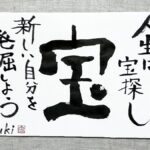 人生は
宝探し
宝
新しい自分を
発掘しよう
uki